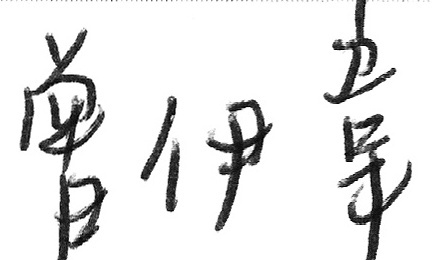 曾伊韋